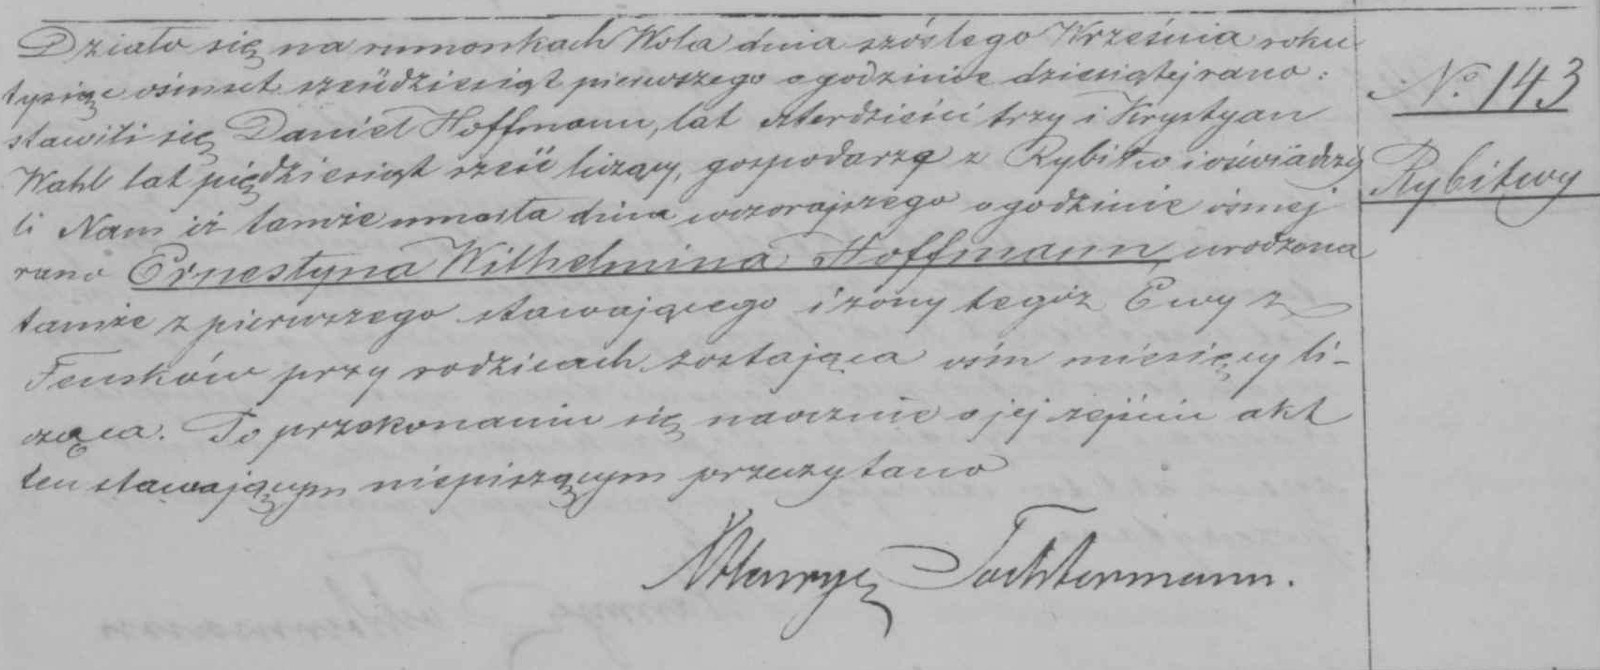 Działo się na rumonkach Wola dnia szóstego Września roku
tysiąc ośmset sześćdziesiąt pierwszego o godzinie dziesiątej rano:
stawili się Daniel Hoffmann, lat czterdzieści trzy i Krystyan
Wahl lat pięćdziesiąt sześć liczący, gospodarze z Rybitw i oświadczy
li Nam iż tamże umarła dnia wczorajszego o godzinie ósmej
rano Ernestyna Wilhelmina Hoffmann, urodzona
tamże z pierwszego stawającego i żony tegoż Ewy z
Fensków przy rodzicach zostająca ośm miesięcy li-
cząca. Po przekonaniu się naocznie o jej zejściu akt
ten stawającym niepiszącym przeczytano
Tochtermann.
No. 143
Rybitwy